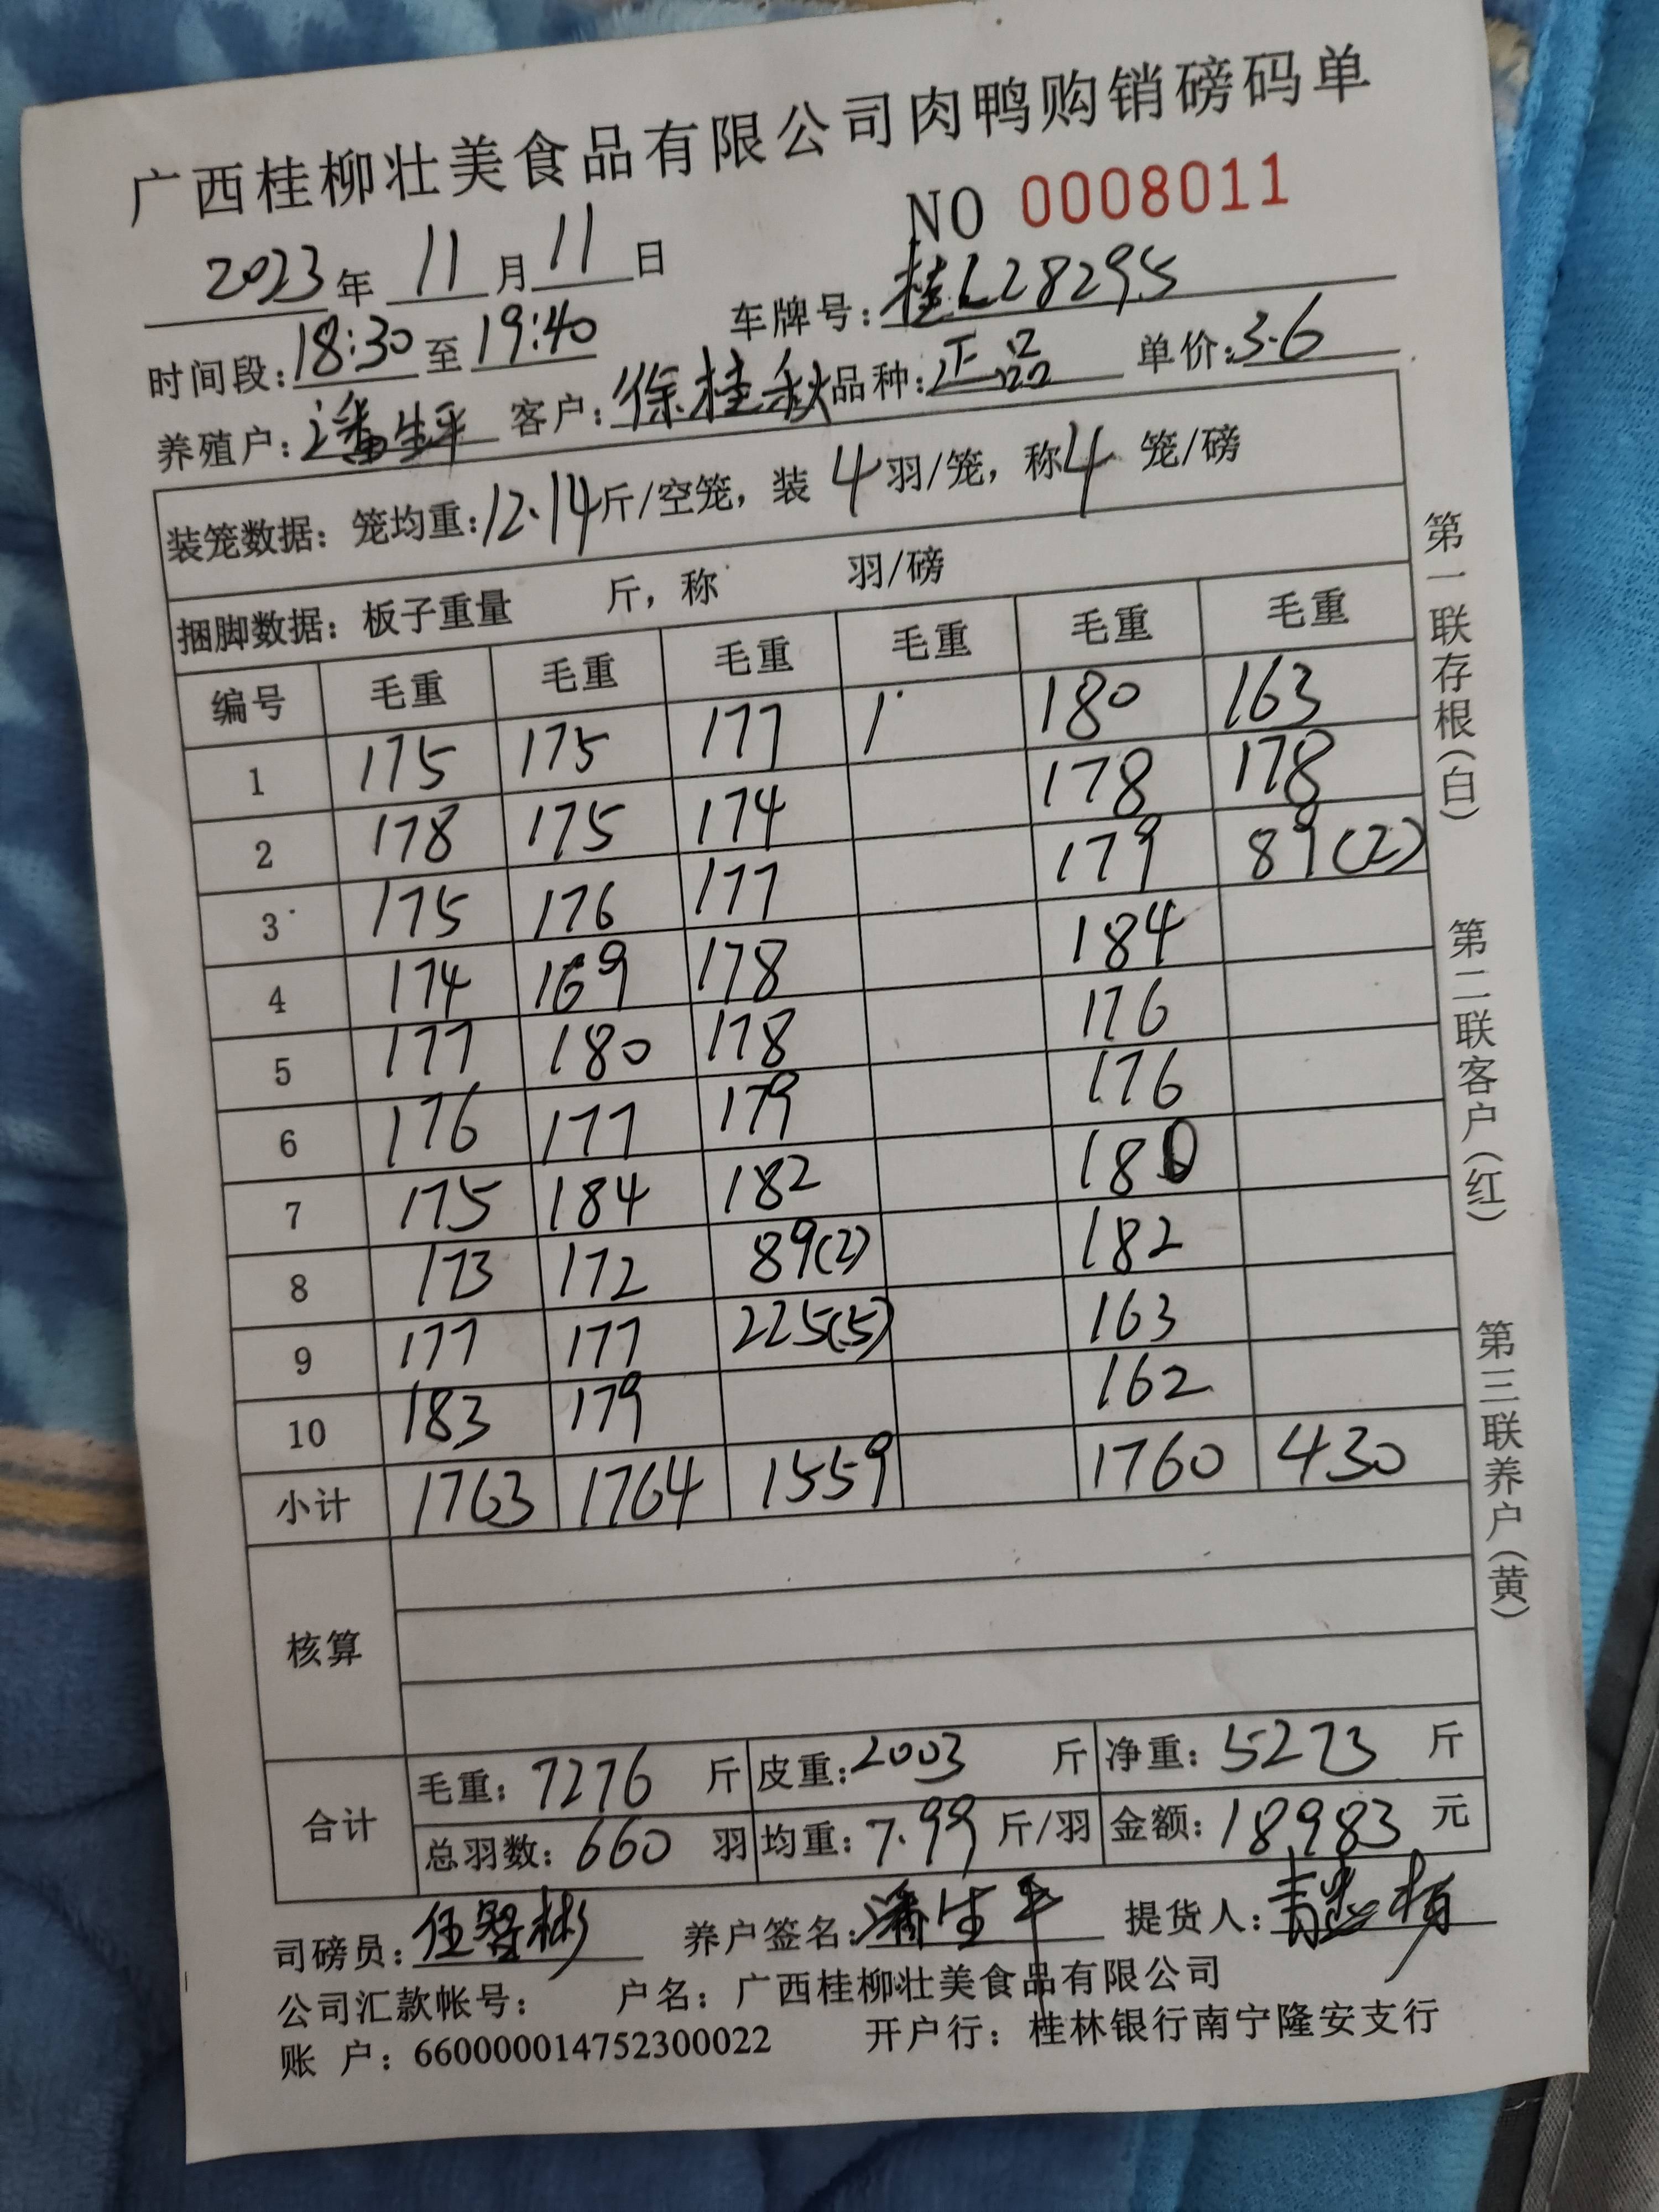 广西桂柳壮美食品有限公司肉鸭购销磅码单
NO 0008011
2023年 11 月 11 日
时间段: 18:30 至 19:40 车牌号: 桂L28295
养殖户: 潘生平 客户: 徐桂秋 品种: 正品 单价: 3.6
装笼数据: 笼均重: 12.14 斤/空笼, 装 4 羽/笼, 称 4 笼/磅
捆脚数据: 板子重量 斤, 称 羽/磅
编号 毛重 毛重 毛重 毛重 毛重 毛重
1 175 175 177 1 180 163
2 178 175 174 178 178
3 175 176 177 179 89(2)
4 174 169 178 184
5 177 180 178 176
6 176 177 179 176
7 175 184 182 180
8 173 172 89(2) 182
9 177 177 225(5) 163
10 183 179 162
小计 1763 1764 1559 1760 430
核算
合计
毛重: 7276 斤 皮重: 2003 斤 净重: 5273 斤
总羽数: 660 羽 均重: 7.99 斤/羽 金额: 18983 元
司磅员: 伍智彬 养户签名: 潘生平 提货人:
公司汇款帐号: 户名: 广西桂柳壮美食品有限公司
账 户: 660000014752300022 开户行: 桂林银行南宁隆安支行
第一联存根(白) 第二联客户(红) 第三联养户(黄)